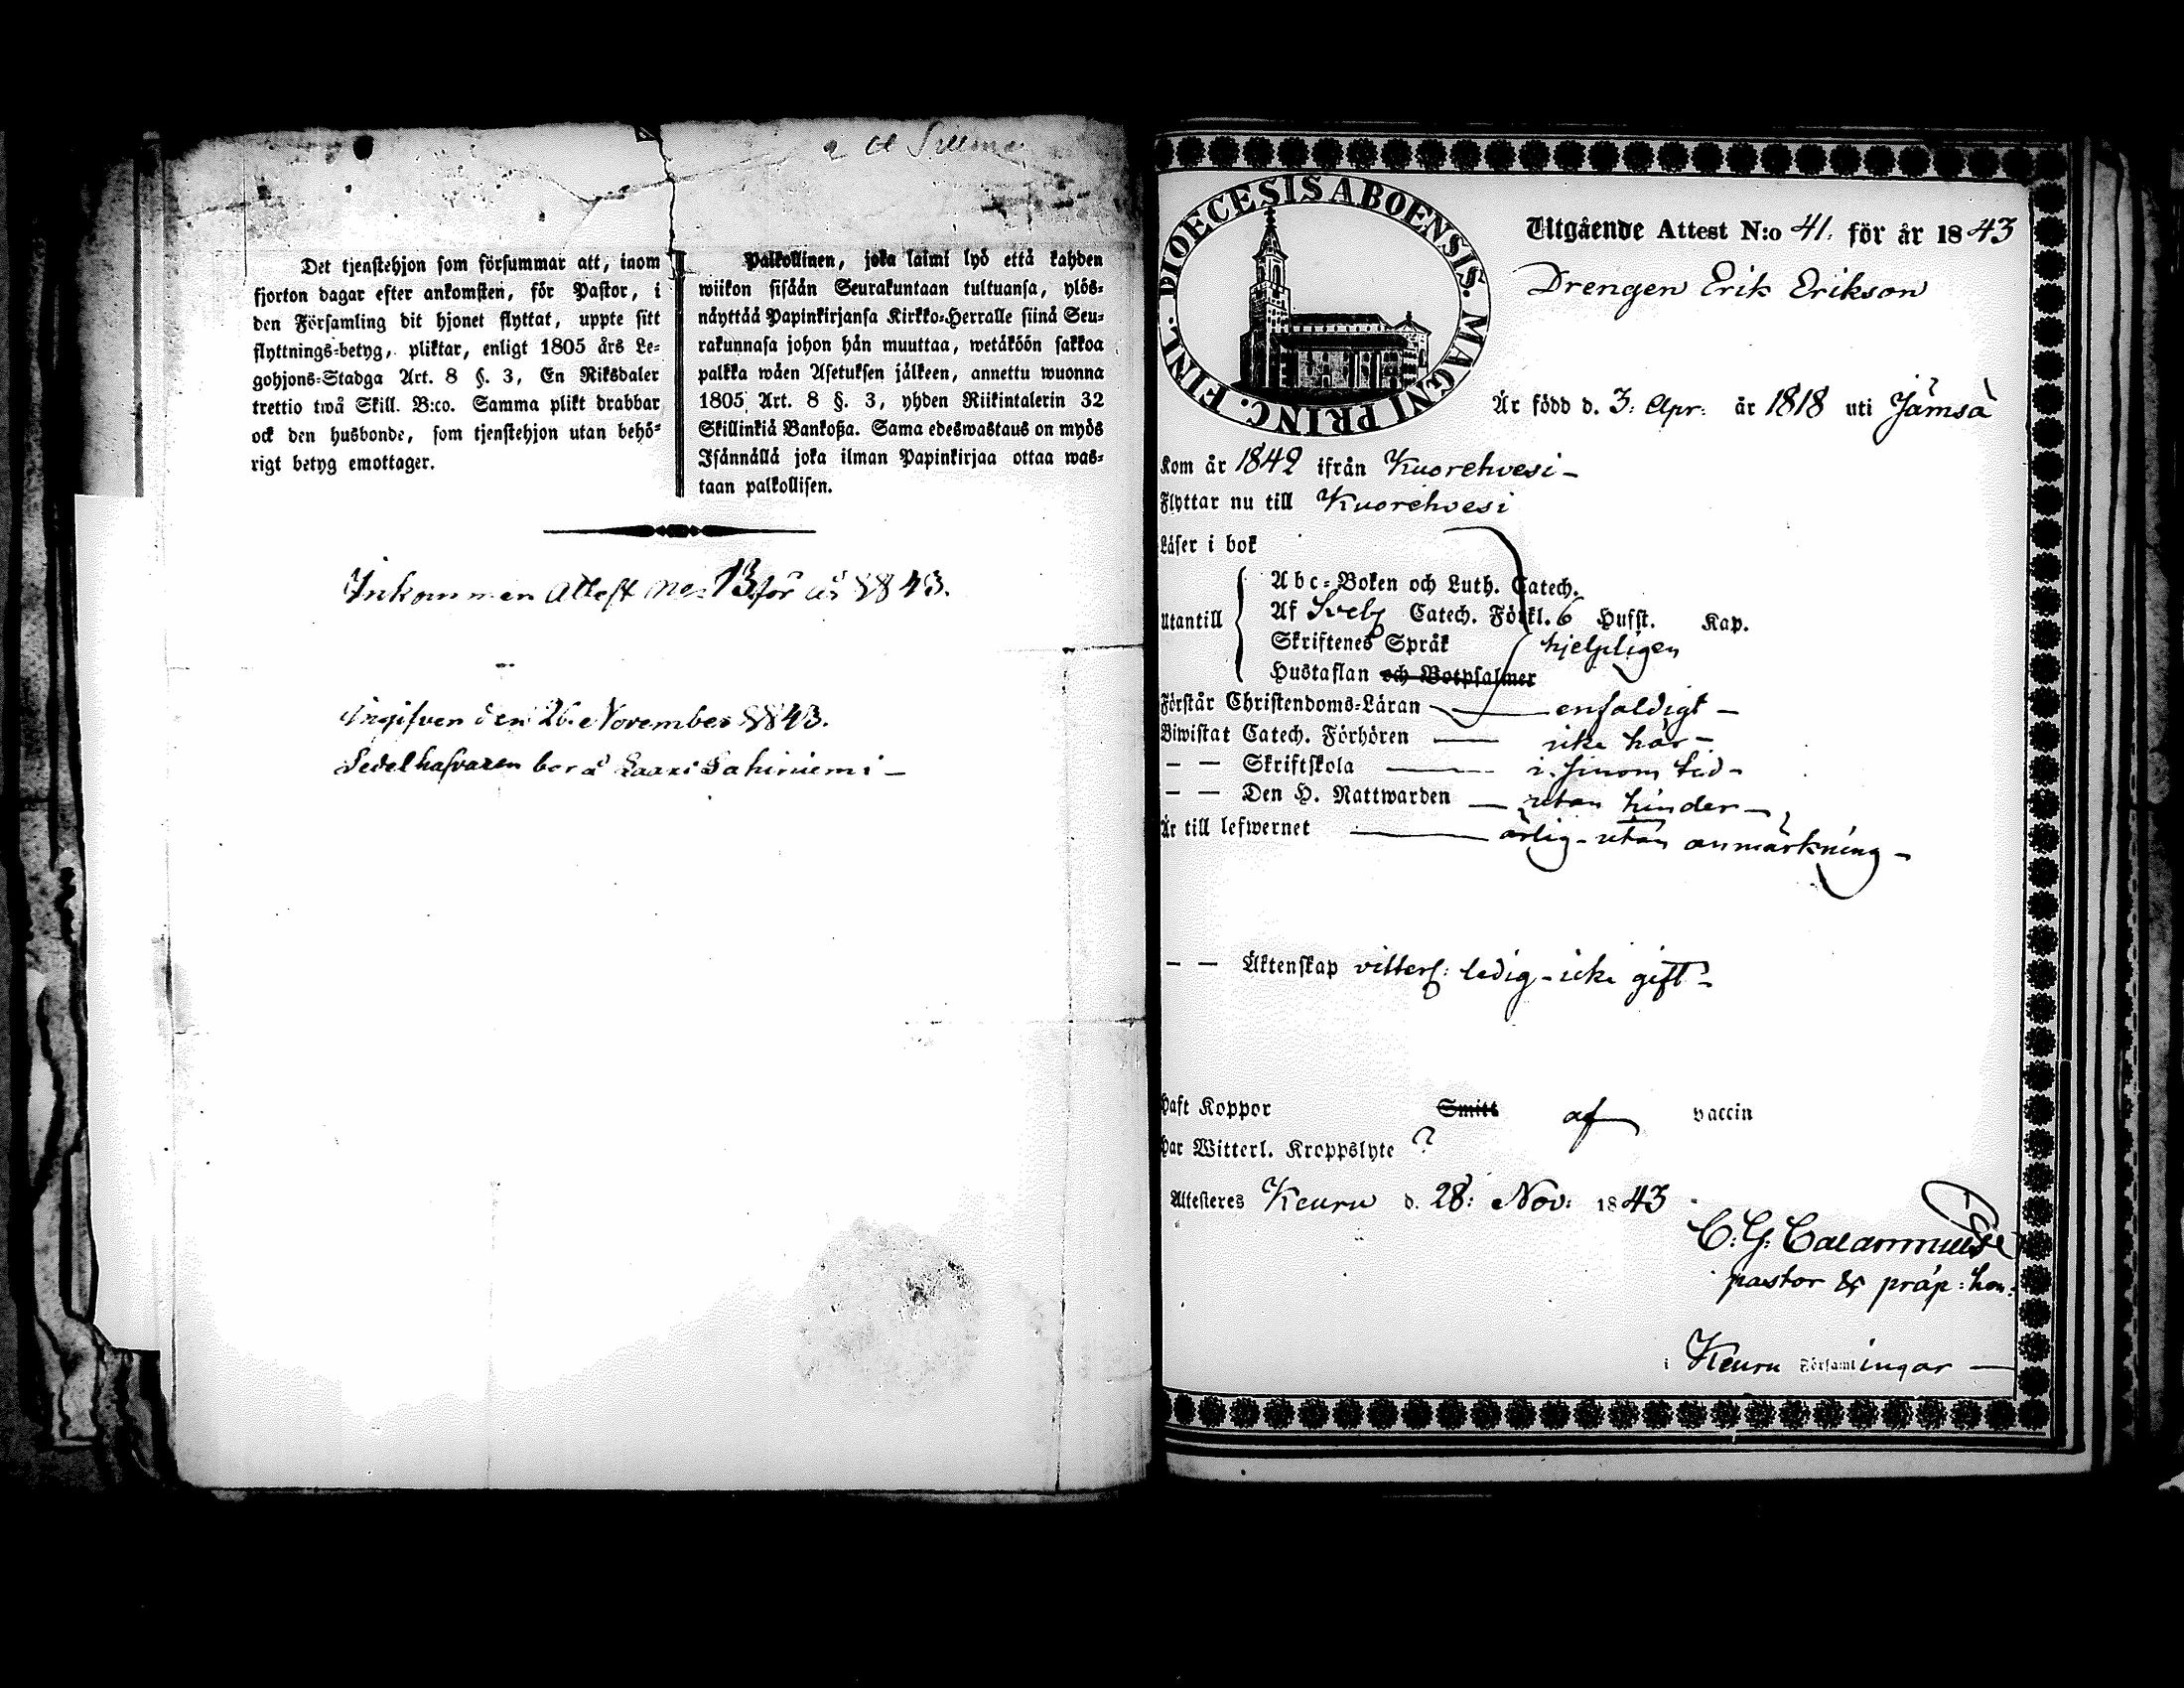 Det tjenstehjon som försummar att, inom
fjorton dagar efter ankomsten, för Pastor, i
den Församling dit hjonet flyttat, uppte sitt
flyttnings-betyg, pliktar, enligt 1805 års Le-
gohjons-Stadga Art. 8 §. 3, En Riksdaler
trettio twå Skill. B:co. Samma plikt drabbar
ock den husbonde, som tjenstehjon utan behö-
rigt betyg emottager.
Palkollinen, joka laimi lyö että kahden
wiikon sisään Seurakuntaan tultuansa, ylös-
näyttää Papinkirjansa Kirkko-Herralle siinä Seu-
rakunnasa johon hän muuttaa, wetäköön sakkoa
palkka wäen Asetuksen jälkeen, annettu wuonna
1805 Art. 8 §. 3, yhden Riikintalerin 32
Skillinkiä Bankoßa. Sama edeswastaus on myös
Isännällä joka ilman Papinkirjaa ottaa was-
taan palkollisen.
Inkommen Attest No: 13 för år 1843.
Ingifven den 26. November 1843.
Sedelhafvaren bor å
DIOECESIS ABOENSIS. MAGNI PRINC. FINL.
Utgående Attest N:o 41. för år 1843
Drengen Erik Erikson
Är född d. 3: Apr: år 1818 uti Jämsä
Kom år 1842 ifrån Kuorehvesi –
Flyttar nu till Kuorehvesi
Läser i bok
Utantill
Abc-Boken och Luth. Catech.
Af Sveb Catech. Förkl. 6 Hufst. Kap.
Skriftenes Språk hjelpligen
Hustaflan och Botpsalmer
Förstår Christendoms-Läran — enfaldigt –
Biwistat Catech. Förhören — icke här –
— — Skriftskola — i sinom tid –
— — Den H. Nattwarden — utan hinder –
Är till lefwernet — ärlig – utan anmärkning –
— — Äktenskap vitterl: ledig – icke gift –
Haft Koppor Smitt af vaccin
Har Witterl. Kroppslyte ?
Attesteres Keuru d. 28: Nov: 1843
C: G:
pastor & præp: hon:
i Keuru Församlingar —